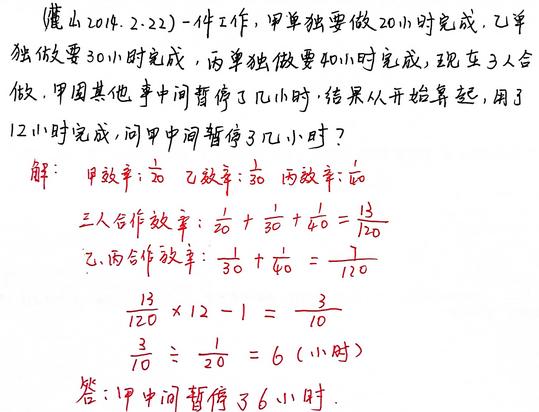 (麓山2014.2.22)一件工作,甲单独要做20小时完成,乙单
独做要30小时完成,丙单独做要40小时完成,现在3人合
做,甲因其他事中间暂停了几小时,结果从开始算起,用了
12小时完成,问甲中间暂停了几小时?
解: 甲效率:1/20 乙效率:1/30 丙效率:1/40
三人合作效率:1/20 + 1/30 + 1/40 = 13/120
乙、丙合作效率:1/30 + 1/40 = 7/120
13/120 × 12 - 1 = 3/10
3/10 ÷ 1/20 = 6 (小时)
答:甲中间暂停了6小时.